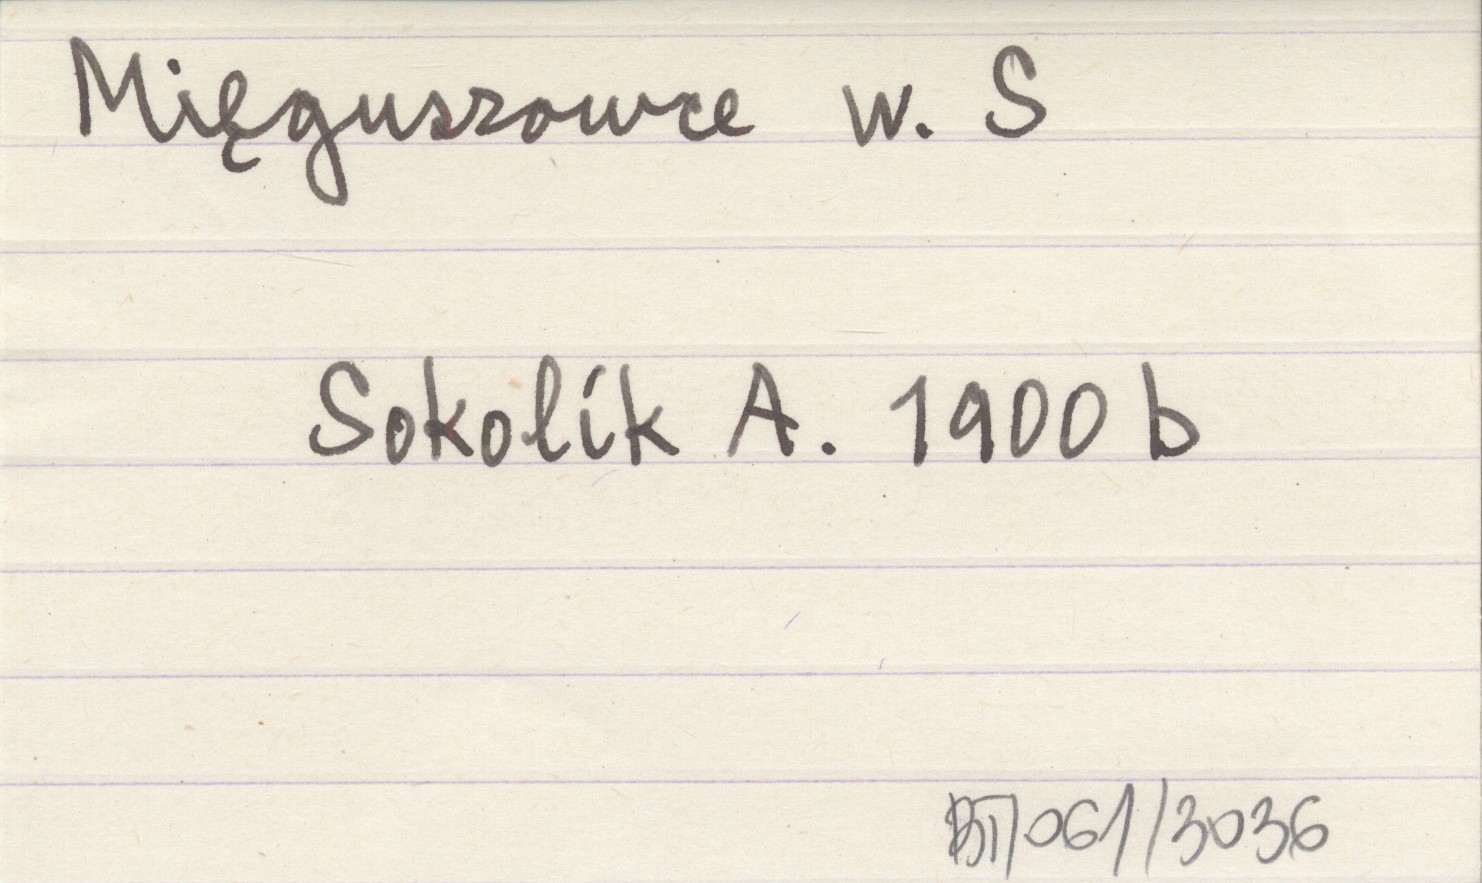 Mięguszowce w. S
Sokolík A. 1900 b
BT/061/3036